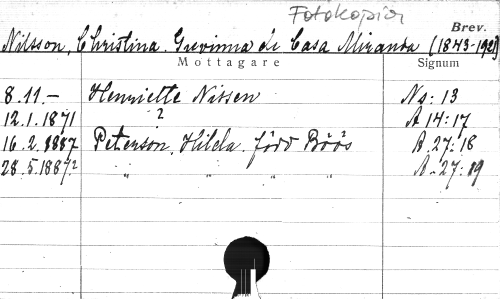 Fotokopior
Brev.
Nilsson, Christina. Grevinna de Casa Miranda (1843-1921)
Mottagare Signum
8.11.– Henriette Nissen Ns: 13
12.1.1871 ? A 14:17
16.2.1887 Peterson, Hilda, född Böös B. 27:18
28.5.1887? " " " " A. 27:19